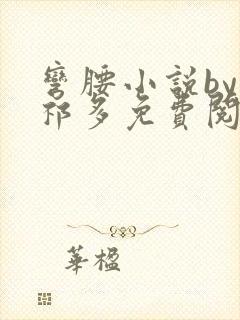 彎腰小說by
祁多免費閱
華楹